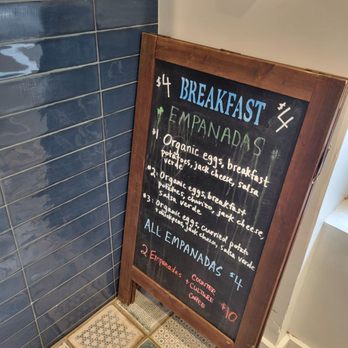 $4 BREAKFAST $4
EMPANADAS
#1 Organic eggs, breakfast
potatoes, jack cheese, salsa
verde
#2: Organic eggs, breakfast
potatoes, chorizo, jack cheese,
salsa verde
#3: Organic eggs, potato
jack cheese, salsa verde
ALL EMPANADAS $4
2 Empanadas
+ CULTURE
COFFEE
$10